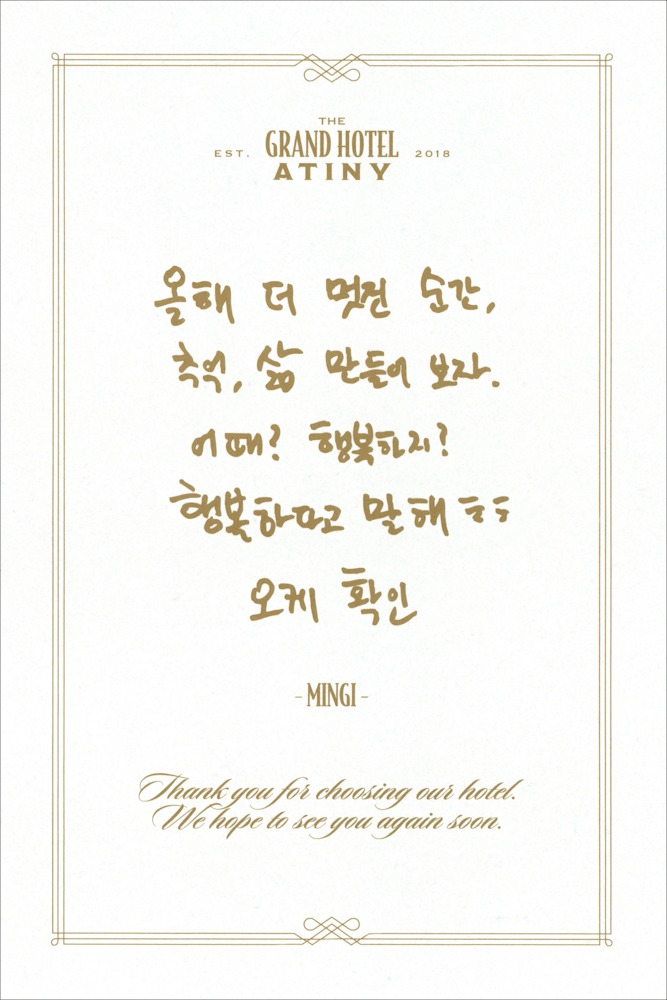 THE
EST. GRAND HOTEL 2018
ATINY
올해 더 멋진 순간,
추억, 삶 만들어 보자.
어때? 행복하지?
행복하다고 말해 ㅎㅎ
오케 확인
- MINGI -
Thank you for choosing our hotel.
We hope to see you again soon.